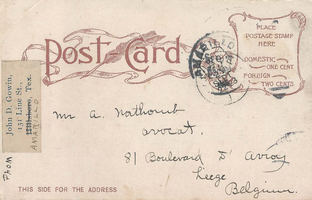 Post Card
PLACE
POSTAGE STAMP
HERE
DOMESTIC
ONE CENT
FOREIGN
TWO CENTS
AMARILLO
John D. Gowin,
131 Line St.,
Hillsboro, Tex.
AMARILLO
FROM
Mr A. Nothomb
avocat.
81 Boulevard D' Avroy
Liege
Belgium.
THIS SIDE FOR THE ADDRESS